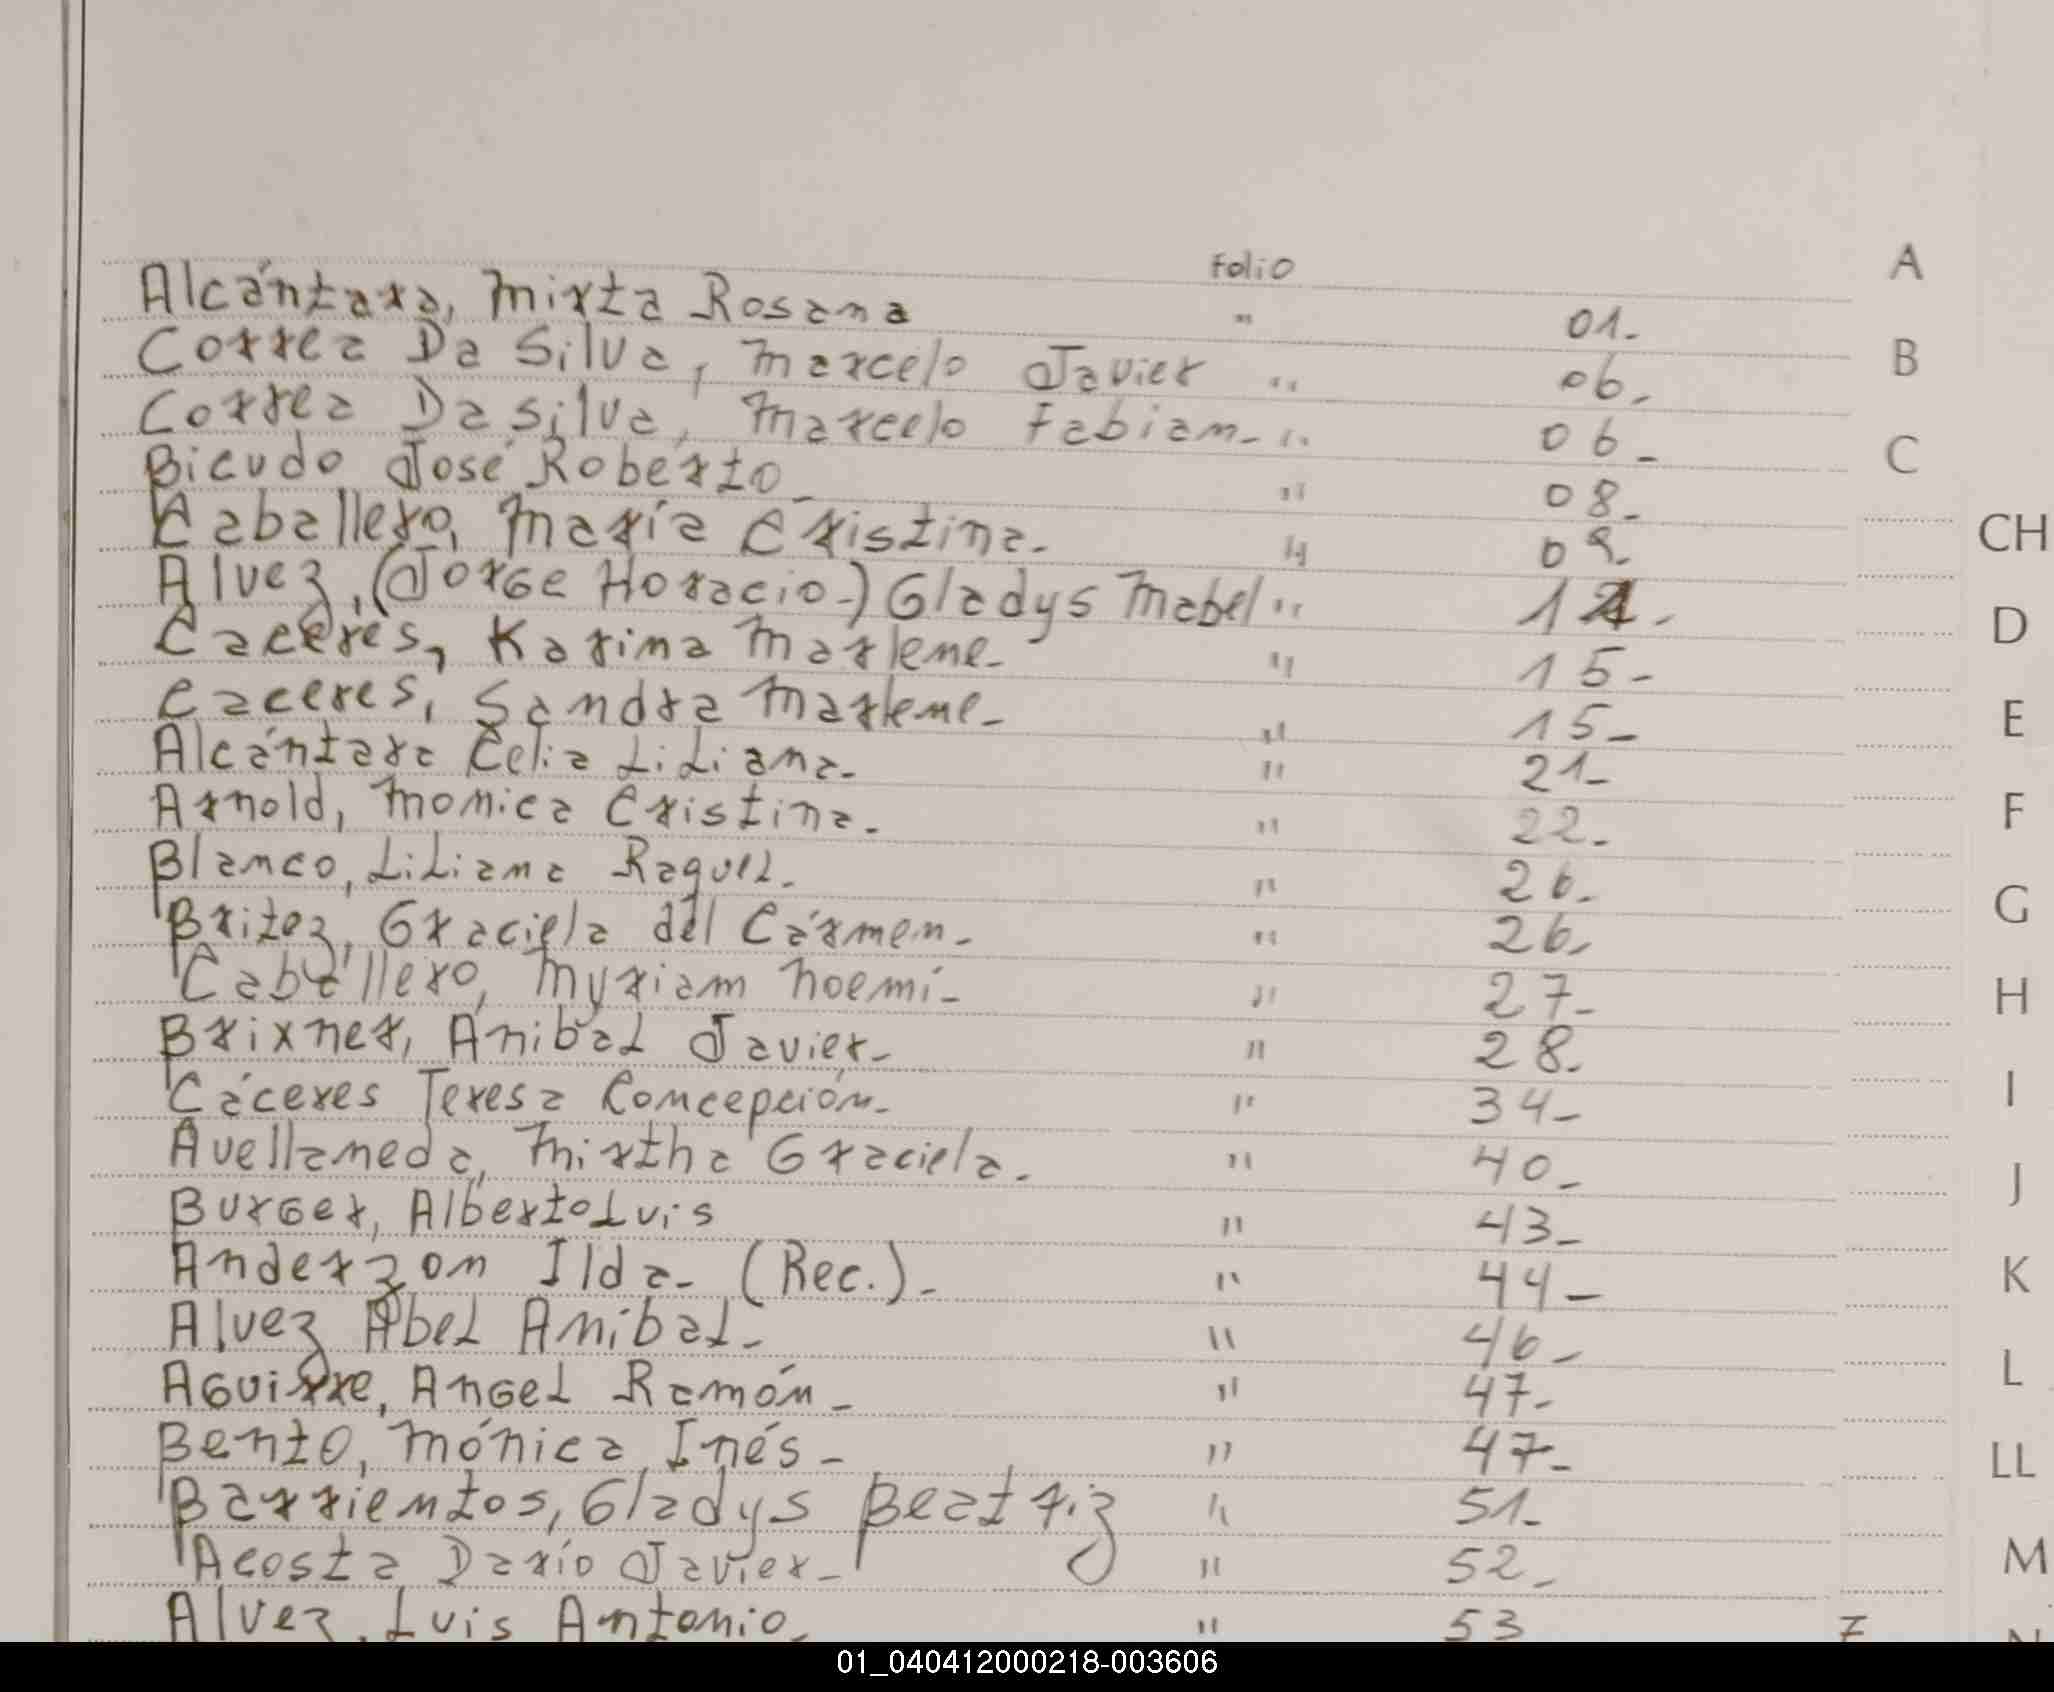 Folio
Alcántara, Mirta Rosana " 01.-
Correa Da Silva, Marcelo Javier " 06.-
Correa Da Silva, Marcelo Fabian.- " 06.-
Bicudo José Roberto.- " 08.-
Caballero, María Cristina.- " 09.-
Alvez, (Jorge Horacio.-) Gladys Mabel " .-
Caceres, Karina Marlene.- " 15.-
Caceres, Sandra Marlene.- " 15.-
Alcántara Celia Liliana.- " 21.-
Arnold, Monica Cristina.- " 22.-
Blanco, Liliana Raquel.- " 26.-
Britez, Graciela del Cármen.- " 26.-
Caballero, Myriam Noemí.- " 27.-
Brixner, Anibal Javier.- " 28.-
Cáceres Teresa Concepción.- " 34.-
Avellaneda, Mirtha Graciela.- " 40.-
Burger, Alberto Luis " 43.-
Anderzon Ilda.- (Rec.).- " 44.-
Alvez Abel Anibal.- " 46.-
Aguirre, Angel Ramón.- " 47.-
Bento, Mónica Inés.- " 47.-
Barrientos, Gladys Beatriz " 51.-
Acosta Darío Javier.- " 52.-
Alvez, Luis Antonio.- " 53
7
A
B
C
CH
D
E
F
G
H
I
J
K
L
LL
M
N
01_040412000218-003606